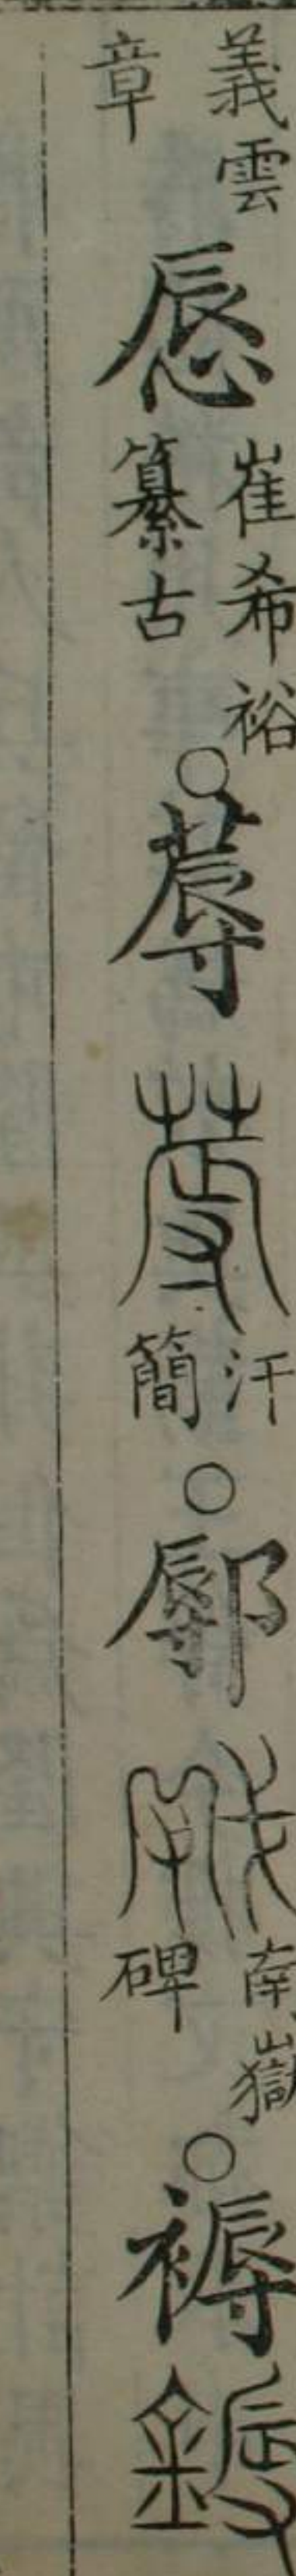 義雲章
𢚊崔希裕纂古
○蓐
汗簡
○鄏
南嶽碑
○褥